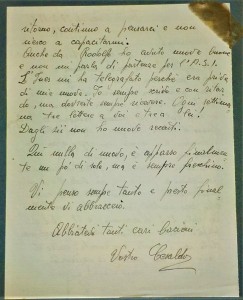 ritorno, continuo a pensarci e non
riesco a capacitarmi.
Anche da Rodolfo ho avuto nuove buone
e non mi parla di partenza per l'A.S.I.
L' mi ha telegrafato perché era priva
di mie nuove. Io sempre scrivo e con
ma dovreste sempre ricevere. Ogni settimana
tre lettere a chi e tre a
Dagli zii non ho nuove recenti.
Qui nulla di nuovo, è apparso finalmente
un po' di sole, ma è sempre freschino.
Vi penso sempre tanto e presto final
mente vi abbraccio.
Abbiatevi tanti cari bacioni
Vostro